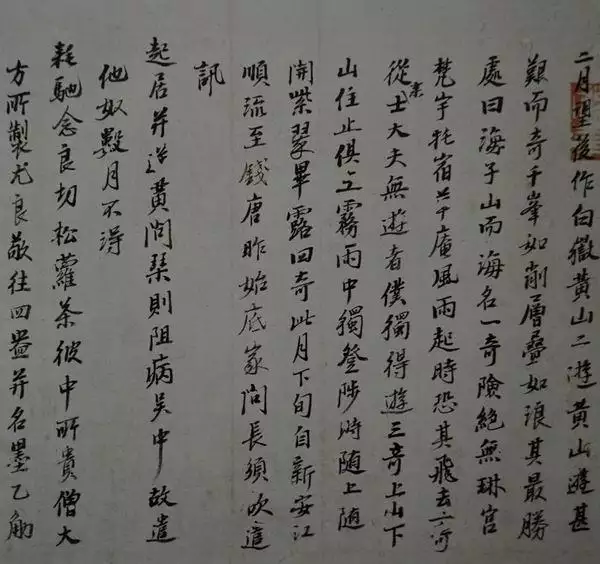 二月望後作白嶽黃山二遊黃山遊甚
艱而奇千峯如削層疊如浪其最勝
處曰海子山而海名一奇險絕無琳宮
梵宇托宿茅庵風雨起時恐其飛去二奇
從來士大夫無遊者僕獨得遊三奇上山下
山住止俱在霧雨中獨登陟時隨上隨
開紫翠畢露四奇此月下旬自新安江
順流至錢唐昨始底家問長須欲遣
訊
起居并送黃問琴則阻病吳中故遣
他奴數月不得
耗馳念良切松蘿茶彼中所貴僧大
方所製尤良敬往四器并名墨乙觔